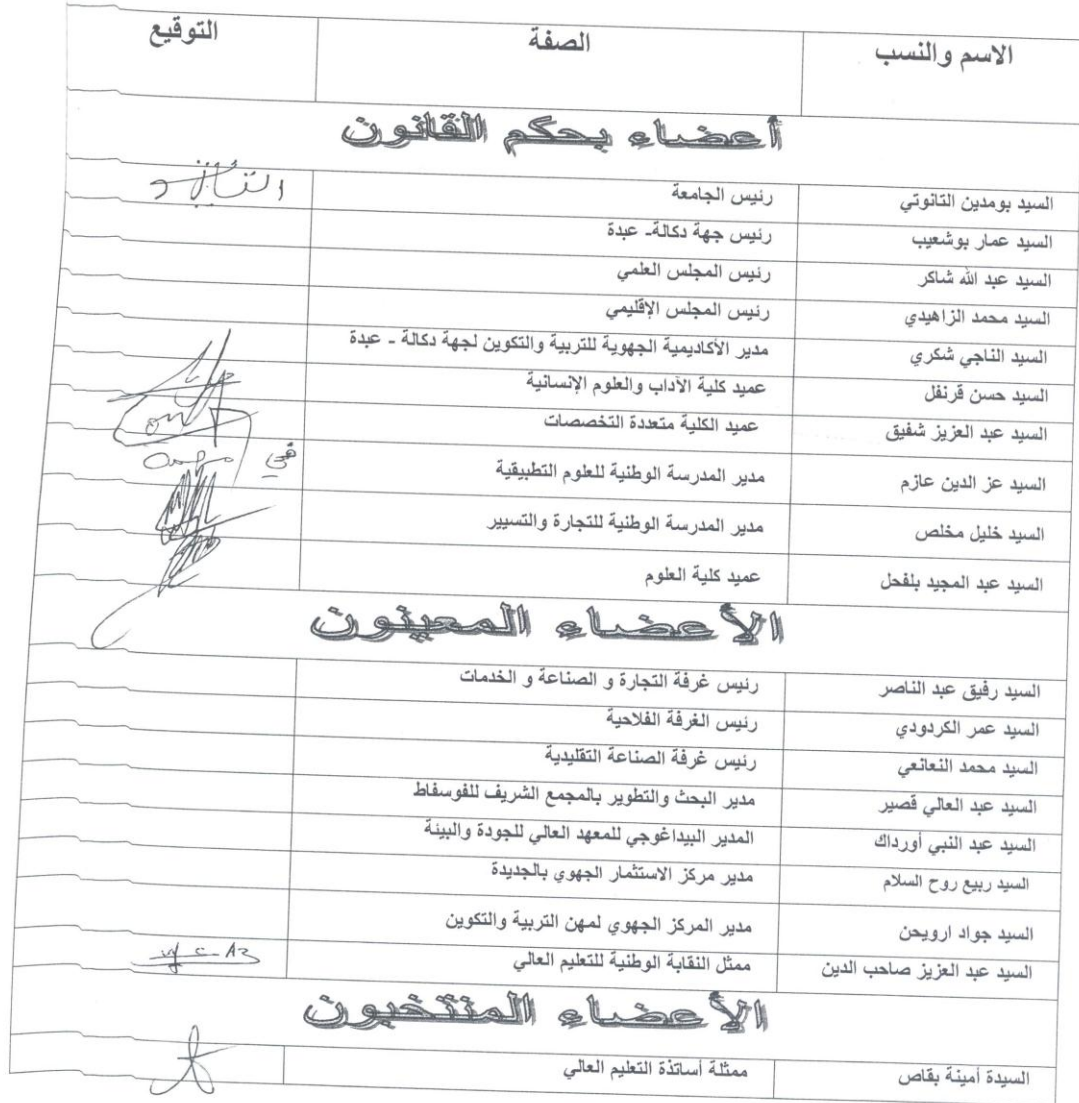 الاسم والنسب الصفة التوقيع
أعضاء بحكم القانون
السيد بومدين التانوتي رئيس الجامعة
السيد عمار بوشعيب رئيس جهة دكالة- عبدة
السيد عبد الله شاكر رئيس المجلس العلمي
السيد محمد الزاهيدي رئيس المجلس الإقليمي
السيد الناجي شكري مدير الأكاديمية الجهوية للتربية والتكوين لجهة دكالة - عبدة
السيد حسن قرنفل عميد كلية الآداب والعلوم الإنسانية
السيد عبد العزيز شفيق عميد الكلية متعددة التخصصات
السيد عز الدين عازم مدير المدرسة الوطنية للعلوم التطبيقية
السيد خليل مخلص مدير المدرسة الوطنية للتجارة والتسيير
السيد عبد المجيد بلفحل عميد كلية العلوم
الأعضاء المعينون
السيد رفيق عبد الناصر رئيس غرفة التجارة و الصناعة و الخدمات
السيد عمر الكردودي رئيس الغرفة الفلاحية
السيد محمد النعانعي رئيس غرفة الصناعة التقليدية
السيد عبد العالي قصير مدير البحث والتطوير بالمجمع الشريف للفوسفاط
السيد عبد النبي أورداك المدير البيداغوجي للمعهد العالي للجودة والبيئة
السيد ربيع روح السلام مدير مركز الاستثمار الجهوي بالجديدة
السيد جواد ارويحن مدير المركز الجهوي لمهن التربية والتكوين
السيد عبد العزيز صاحب الدين ممثل النقابة الوطنية للتعليم العالي
الأعضاء المنتخبون
السيدة أمينة بقاص ممثلة أساتذة التعليم العالي